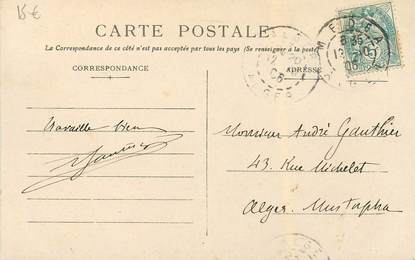 15 €
CARTE POSTALE
La Correspondance de ce côté n'est pas acceptée par tous les pays (Se renseigner à la poste)
CORRESPONDANCE
ADRESSE
ALGER
Travaille bien
Monsieur André Gauthier
43. Rue Michelet
Alger. Mustapha